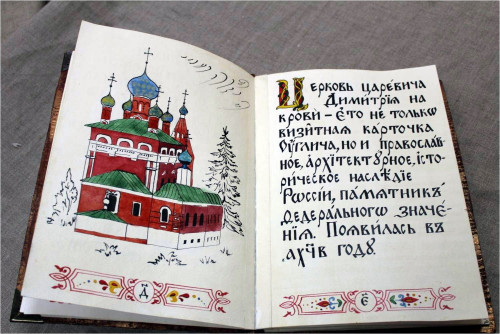 Церковь царе́вича
Димитрїѧ на
крови – є́то не толькѡ
визи́тная ка́рточка
Оуглича, но и правосла́в
ное, а́рхїтекту́рное, їсто
ри́ческое наслѣ́дїе
Рѡссїи, па́мѧтникъ
Ѳедеральногѡ значе́
нїѧ. Появилась въ
҂ахч҃в году.
Д҃
Є҃